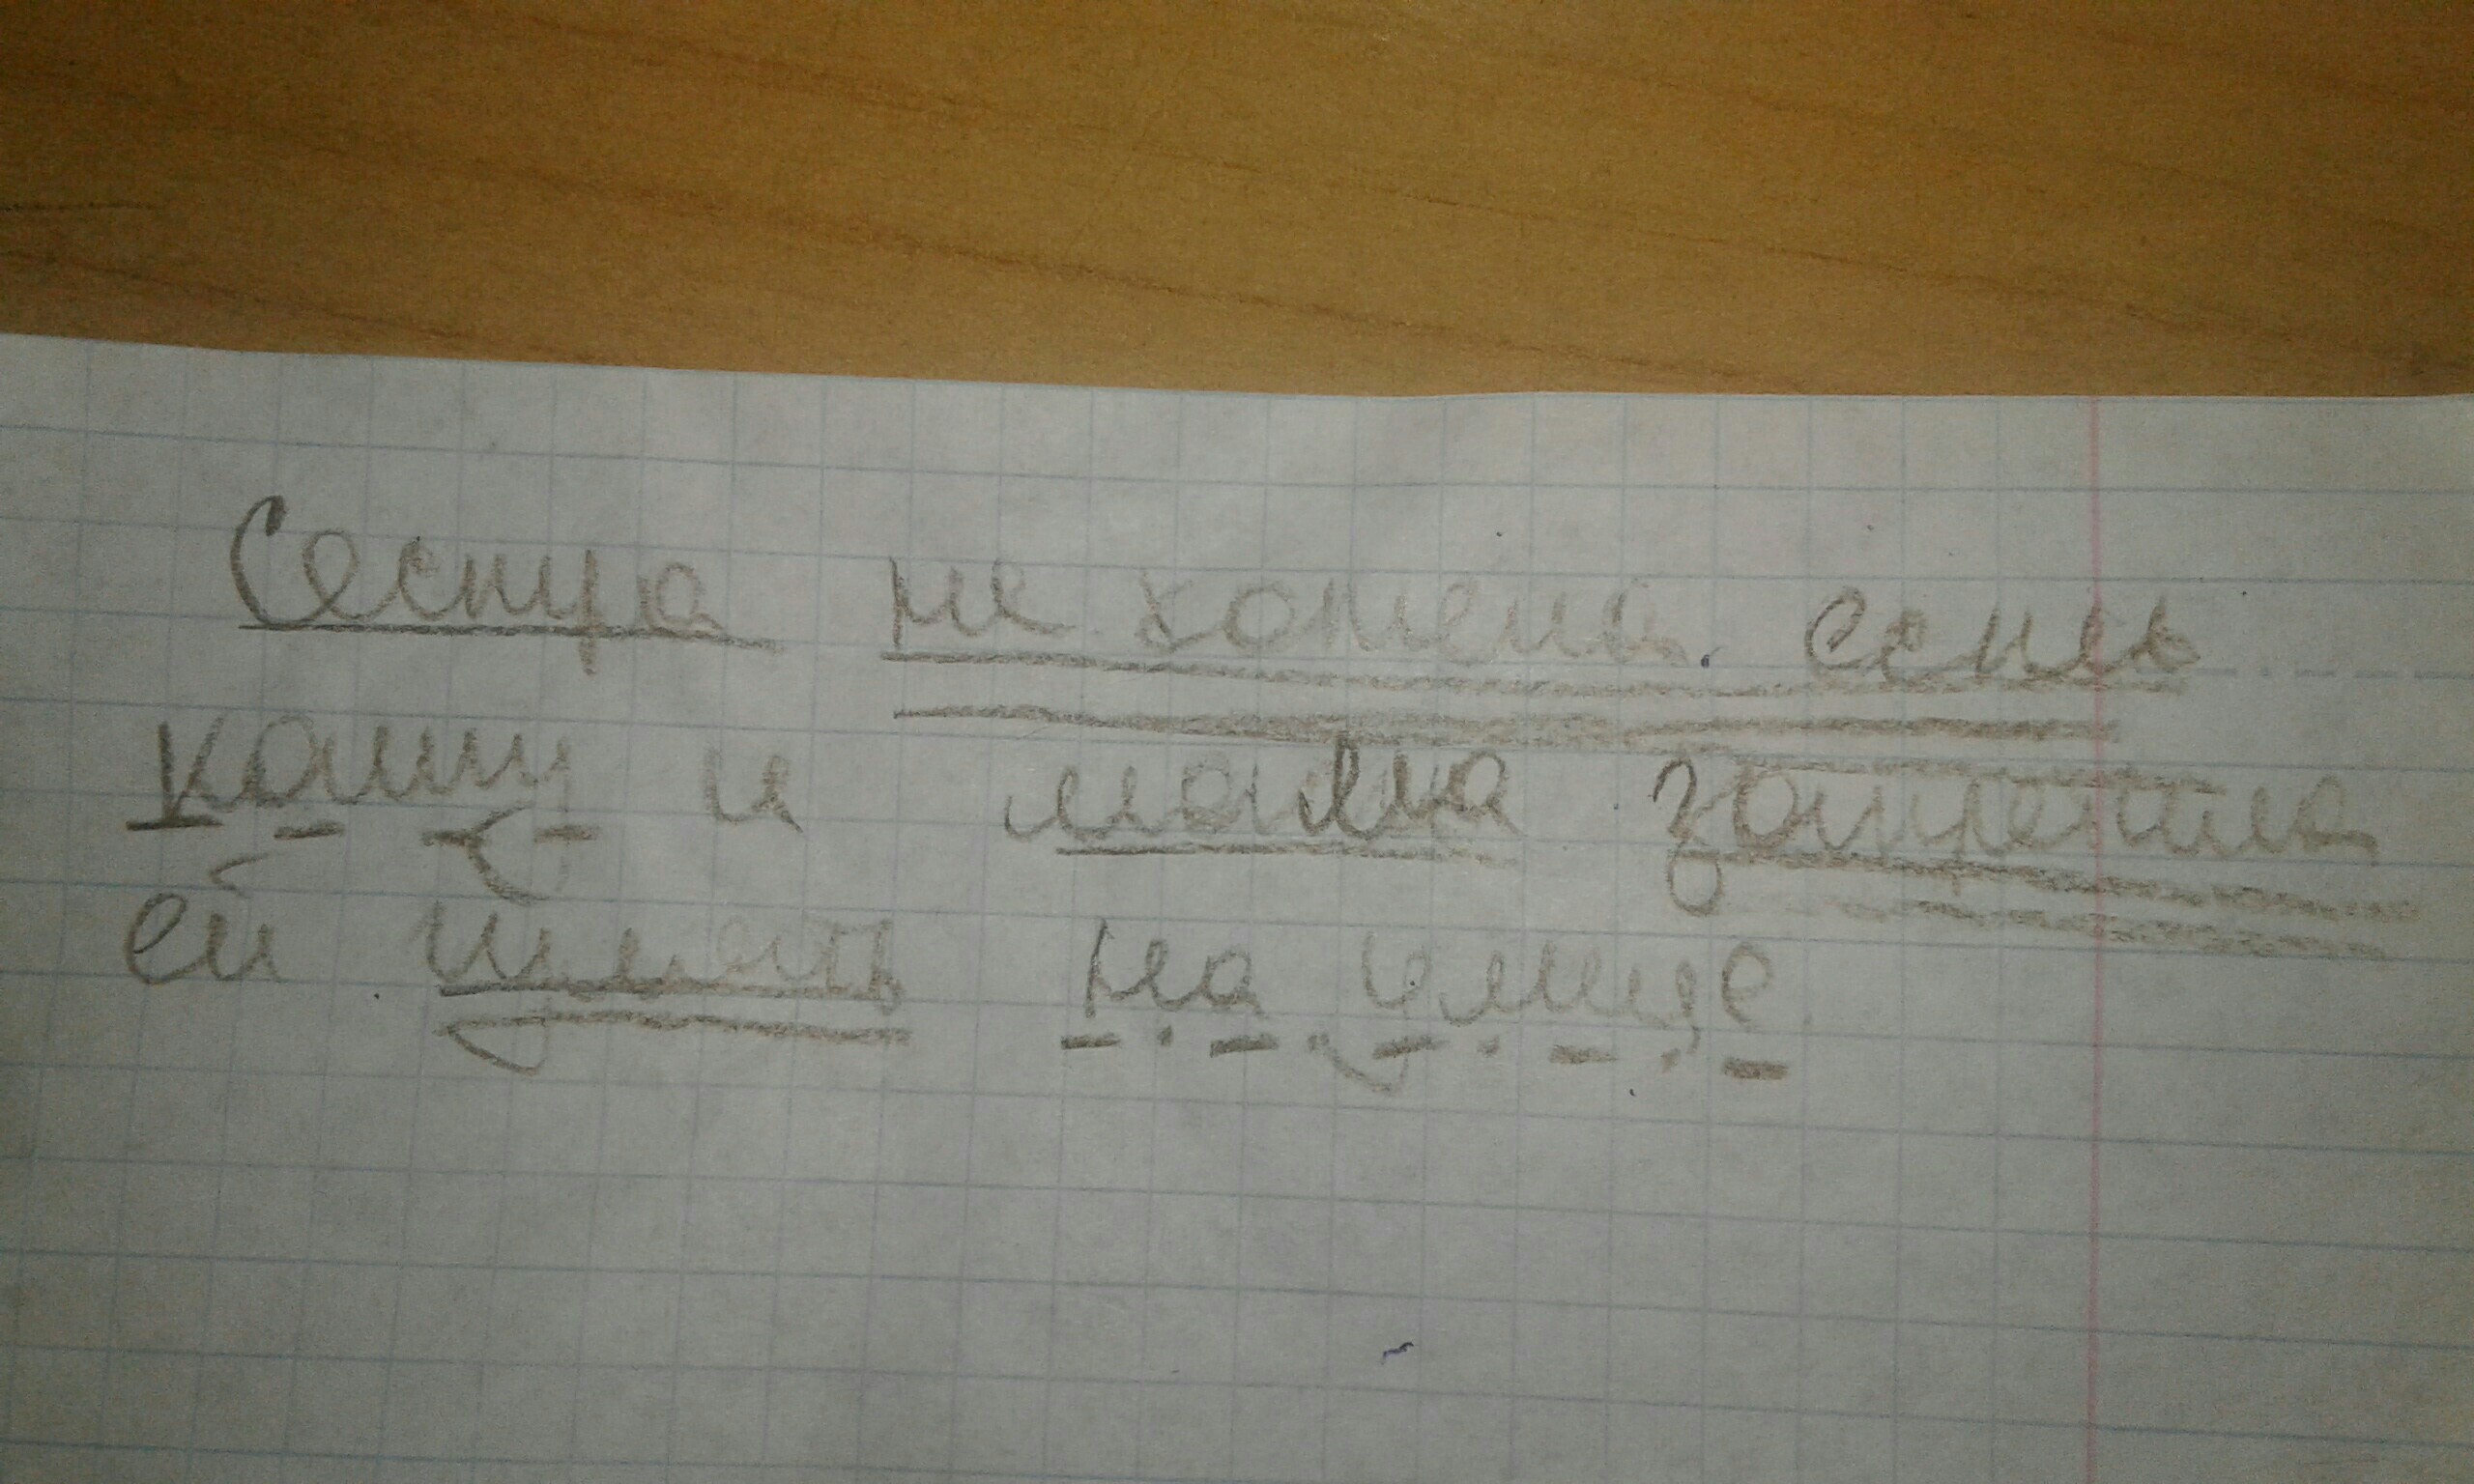 Сестра не хотела есть
кашу и мама запретила
ей гулять на улице